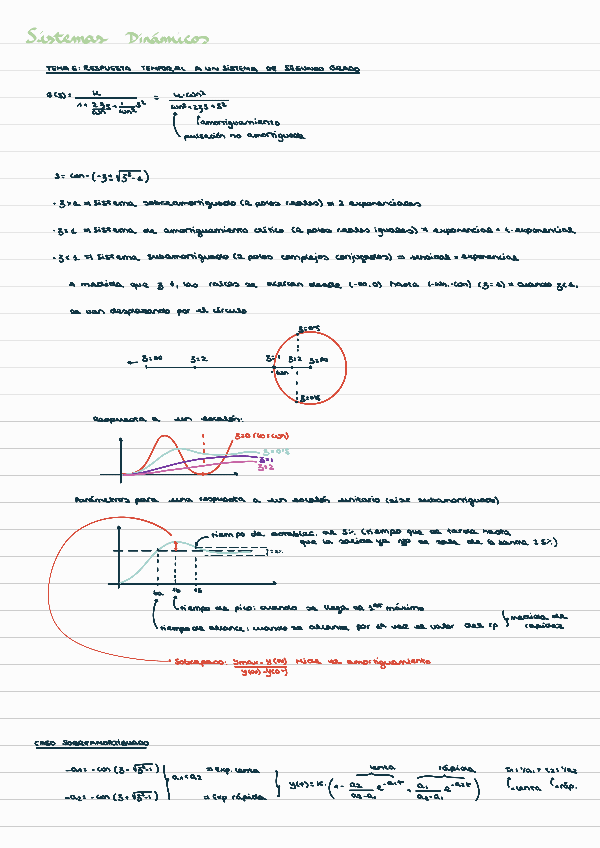 Sistemas Dinámicos
TEMA 6: RESPUESTA TEMPORAL A UN SISTEMA DE SEGUNDO GRADO
G(s) = K / (1 + 2ζ/ωn s + 1/ωn² s²) = K·ωn² / (ωn² + 2ζs + s²)
amortiguamiento
pulsación no amortiguada
s = ωn·(-ζ ± √(ζ²-1))
· ζ>1 ⇒ Sistema sobreamortiguado (2 polos reales) ⇒ 2 exponenciales
· ζ=1 ⇒ Sistema de amortiguamiento crítico (2 polos reales iguales) ⇒ exponencial + t·exponencial
· ζ<1 ⇒ Sistema subamortiguado (2 polos complejos conjugados) ⇒ senoidal + exponencial
A medida que ζ ↓, las raíces se acercan desde (-∞,0) hasta (-ωn,-ωn) (ζ=1) ⇒ cuando ζ<1,
se van desplazando por el círculo
ζ=0'5
ζ=∞ ζ=2 ζ=1 ζ=2 ζ=∞
ωn
ζ=0'5
Respuesta a un escalón:
ζ=0
ζ=0'5
ζ=1
ζ=2
Parámetros para una respuesta a un escalón unitario (sist subamortiguado)
tiempo de establec. al 5% (tiempo que se tarda hasta
que la salida ya no se sale de la banda ±5%)
tiempo de pico: cuando se llega al 1er máximo
tiempo de alcance: cuando se alcanza por 1ª vez el valor del rp
medida de
rapidez
Sobrepaso: ymax - y(∞) / y(∞) - y(0⁻) mide el amortiguamiento
CASO SOBREAMORTIGUADO
lenta rápida
-a1 = -ωn (ζ-√(ζ²-1)) a1<a2 ⇒ Exp. lenta y(t) = K·(1 - a2/(a2-a1) e^-a1t + a1/(a2-a1) e^-a2t) τ1=1/a1 > τ2=1/a2
-a2 = -ωn (ζ+√(ζ²-1)) ⇒ Exp rápida lenta ráp.